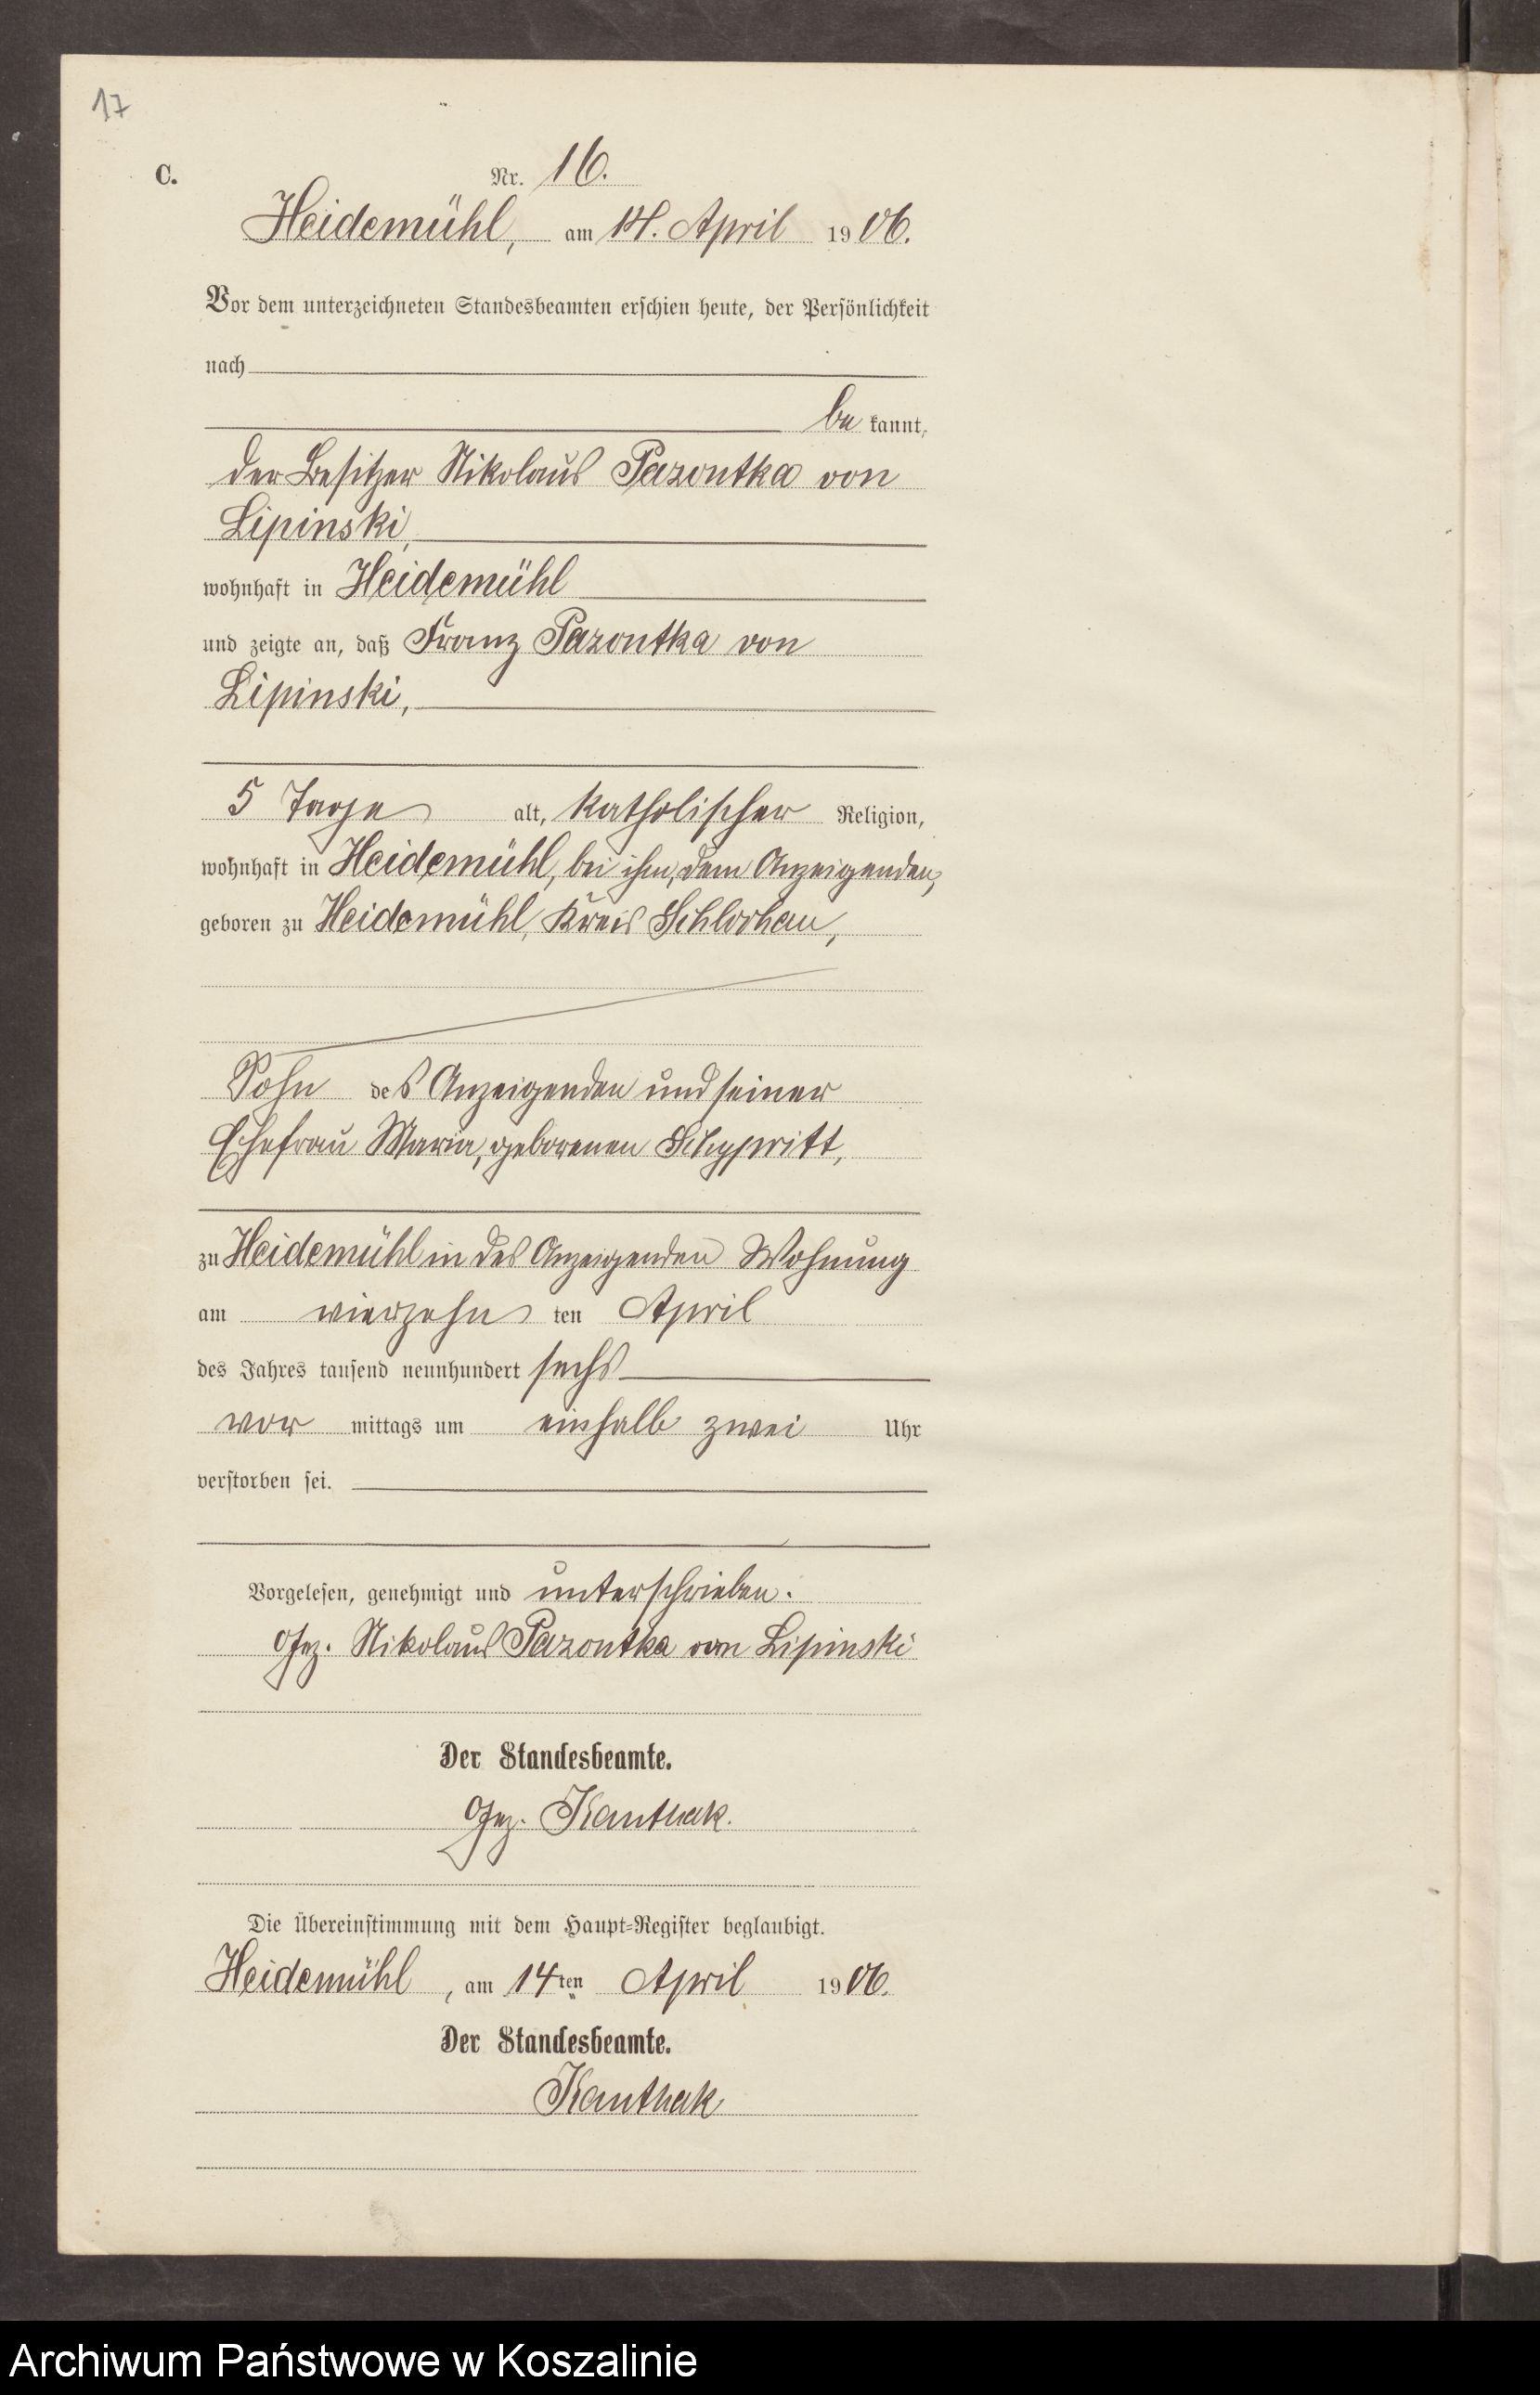 17
C.
Nr. 16.
Heidemühl, am 14. April 1906.
Vor dem unterzeichneten Standesbeamten erschien heute, der Persönlichkeit
nach
be kannt,
der Besitzer Nikolaus Pazontka von
Lipinski,
wohnhaft in Heidemühl
und zeigte an, daß Franz Pazontka von
Lipinski,
5 Tage alt, katholischer Religion,
wohnhaft in Heidemühl, bei ihm, dem Anzeigenden,
geboren zu Heidemühl, Kreis Schlochau,
Sohn des Anzeigenden und seiner
Ehefrau Maria, geborenen
zu Heidemühl in des Anzeigenden Wohnung
am vierzehn ten April
des Jahres tausend neunhundert sechs
vor mittags um einhalb zwei Uhr
verstorben sei.
Vorgelesen, genehmigt und unterschrieben.
Gez. Nikolaus Pazontka von Lipinski
Der Standesbeamte.
Gez. Kanthak.
Die Übereinstimmung mit dem Haupt-Register beglaubigt.
Heidemühl, am 14ten April 1906.
Der Standesbeamte.
Kanthak
Archiwum Państwowe w Koszalinie